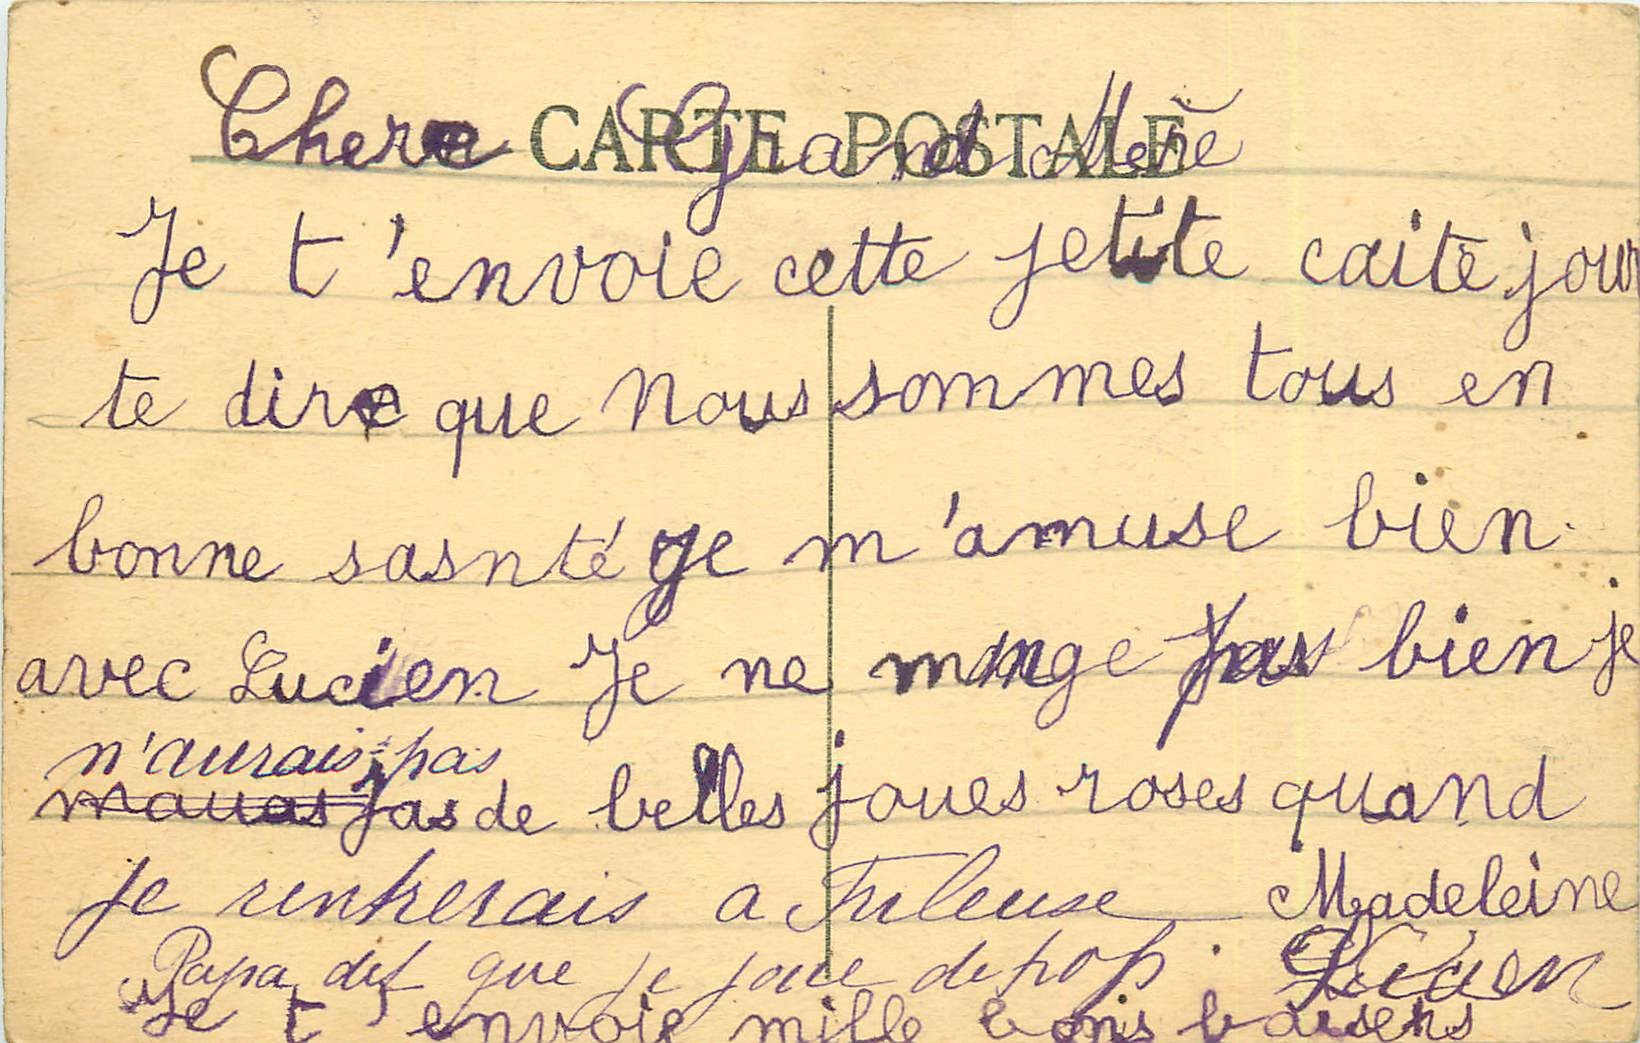 CARTE POSTALE
Chere Grand Mere
Je t'envoie cette petite caite jour
te dire que Nous sommes tous en
bonne sasnté Je m'amuse bien
avec Lucien Je ne mange pas bien je
n'aurais pas
mauas pas de belles joues roses quand
je rentrerais a Toulouse Madeleine
Papa dit que je joue de trop. Lucien
Je t'envoie mille bons baisers